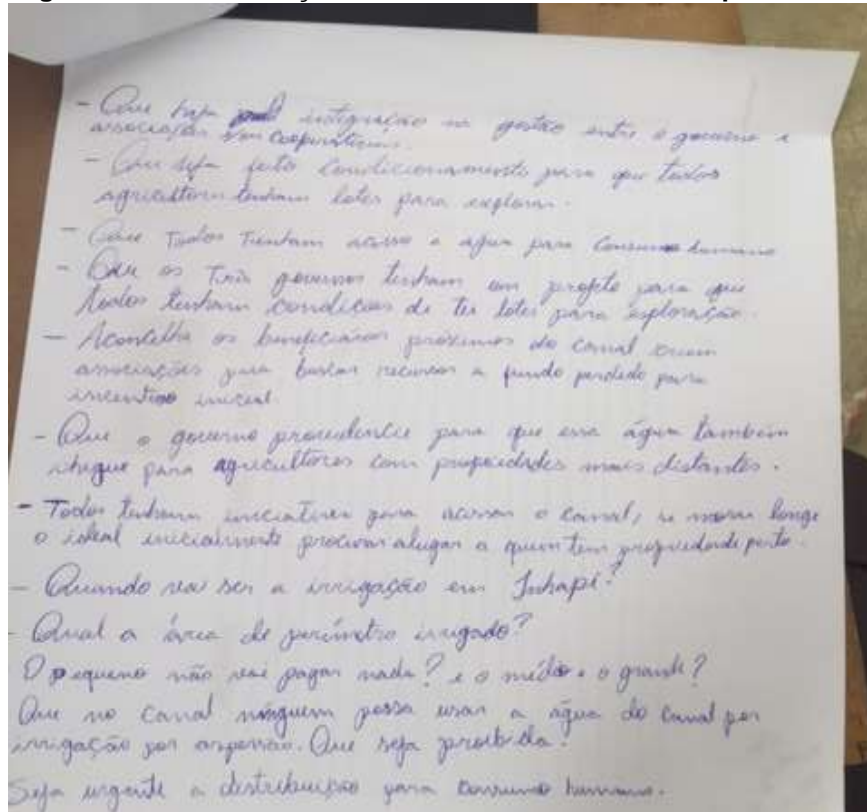 - Que haja integração na gestão entre o governo e
associações cooperativas.
- Que seja feito condicionamento para que todos
agricultores tenham lotes para explorar.
- Que Todos Tenham acesso a água para Consumo humano
- Que os Três governos tenham um projeto para que
todos tenham condições de ter lotes para exploração.
- Aconcelha os beneficiários próximos do canal criem
associações para buscar recursos a fundo perdido para
incentivo inicial.
- Que o governo providencie para que essa água também
chegue para agricultores com propriedades mais distantes.
- Todos tenham iniciativa para acessar o canal, se morar longe
o ideal inicialmente procurar alugar a quem tem propriedade perto.
- Quando vai ser a irrigação em Inhapi?
- Qual a área de perímetro irrigado?
O pequeno não vai pagar nada? e o médio e o grande?
Que no Canal ninguem possa usar a água do canal por
irrigação por aspersão. Que seja proibida.
Seja urgente a distribuição para consumo humano.